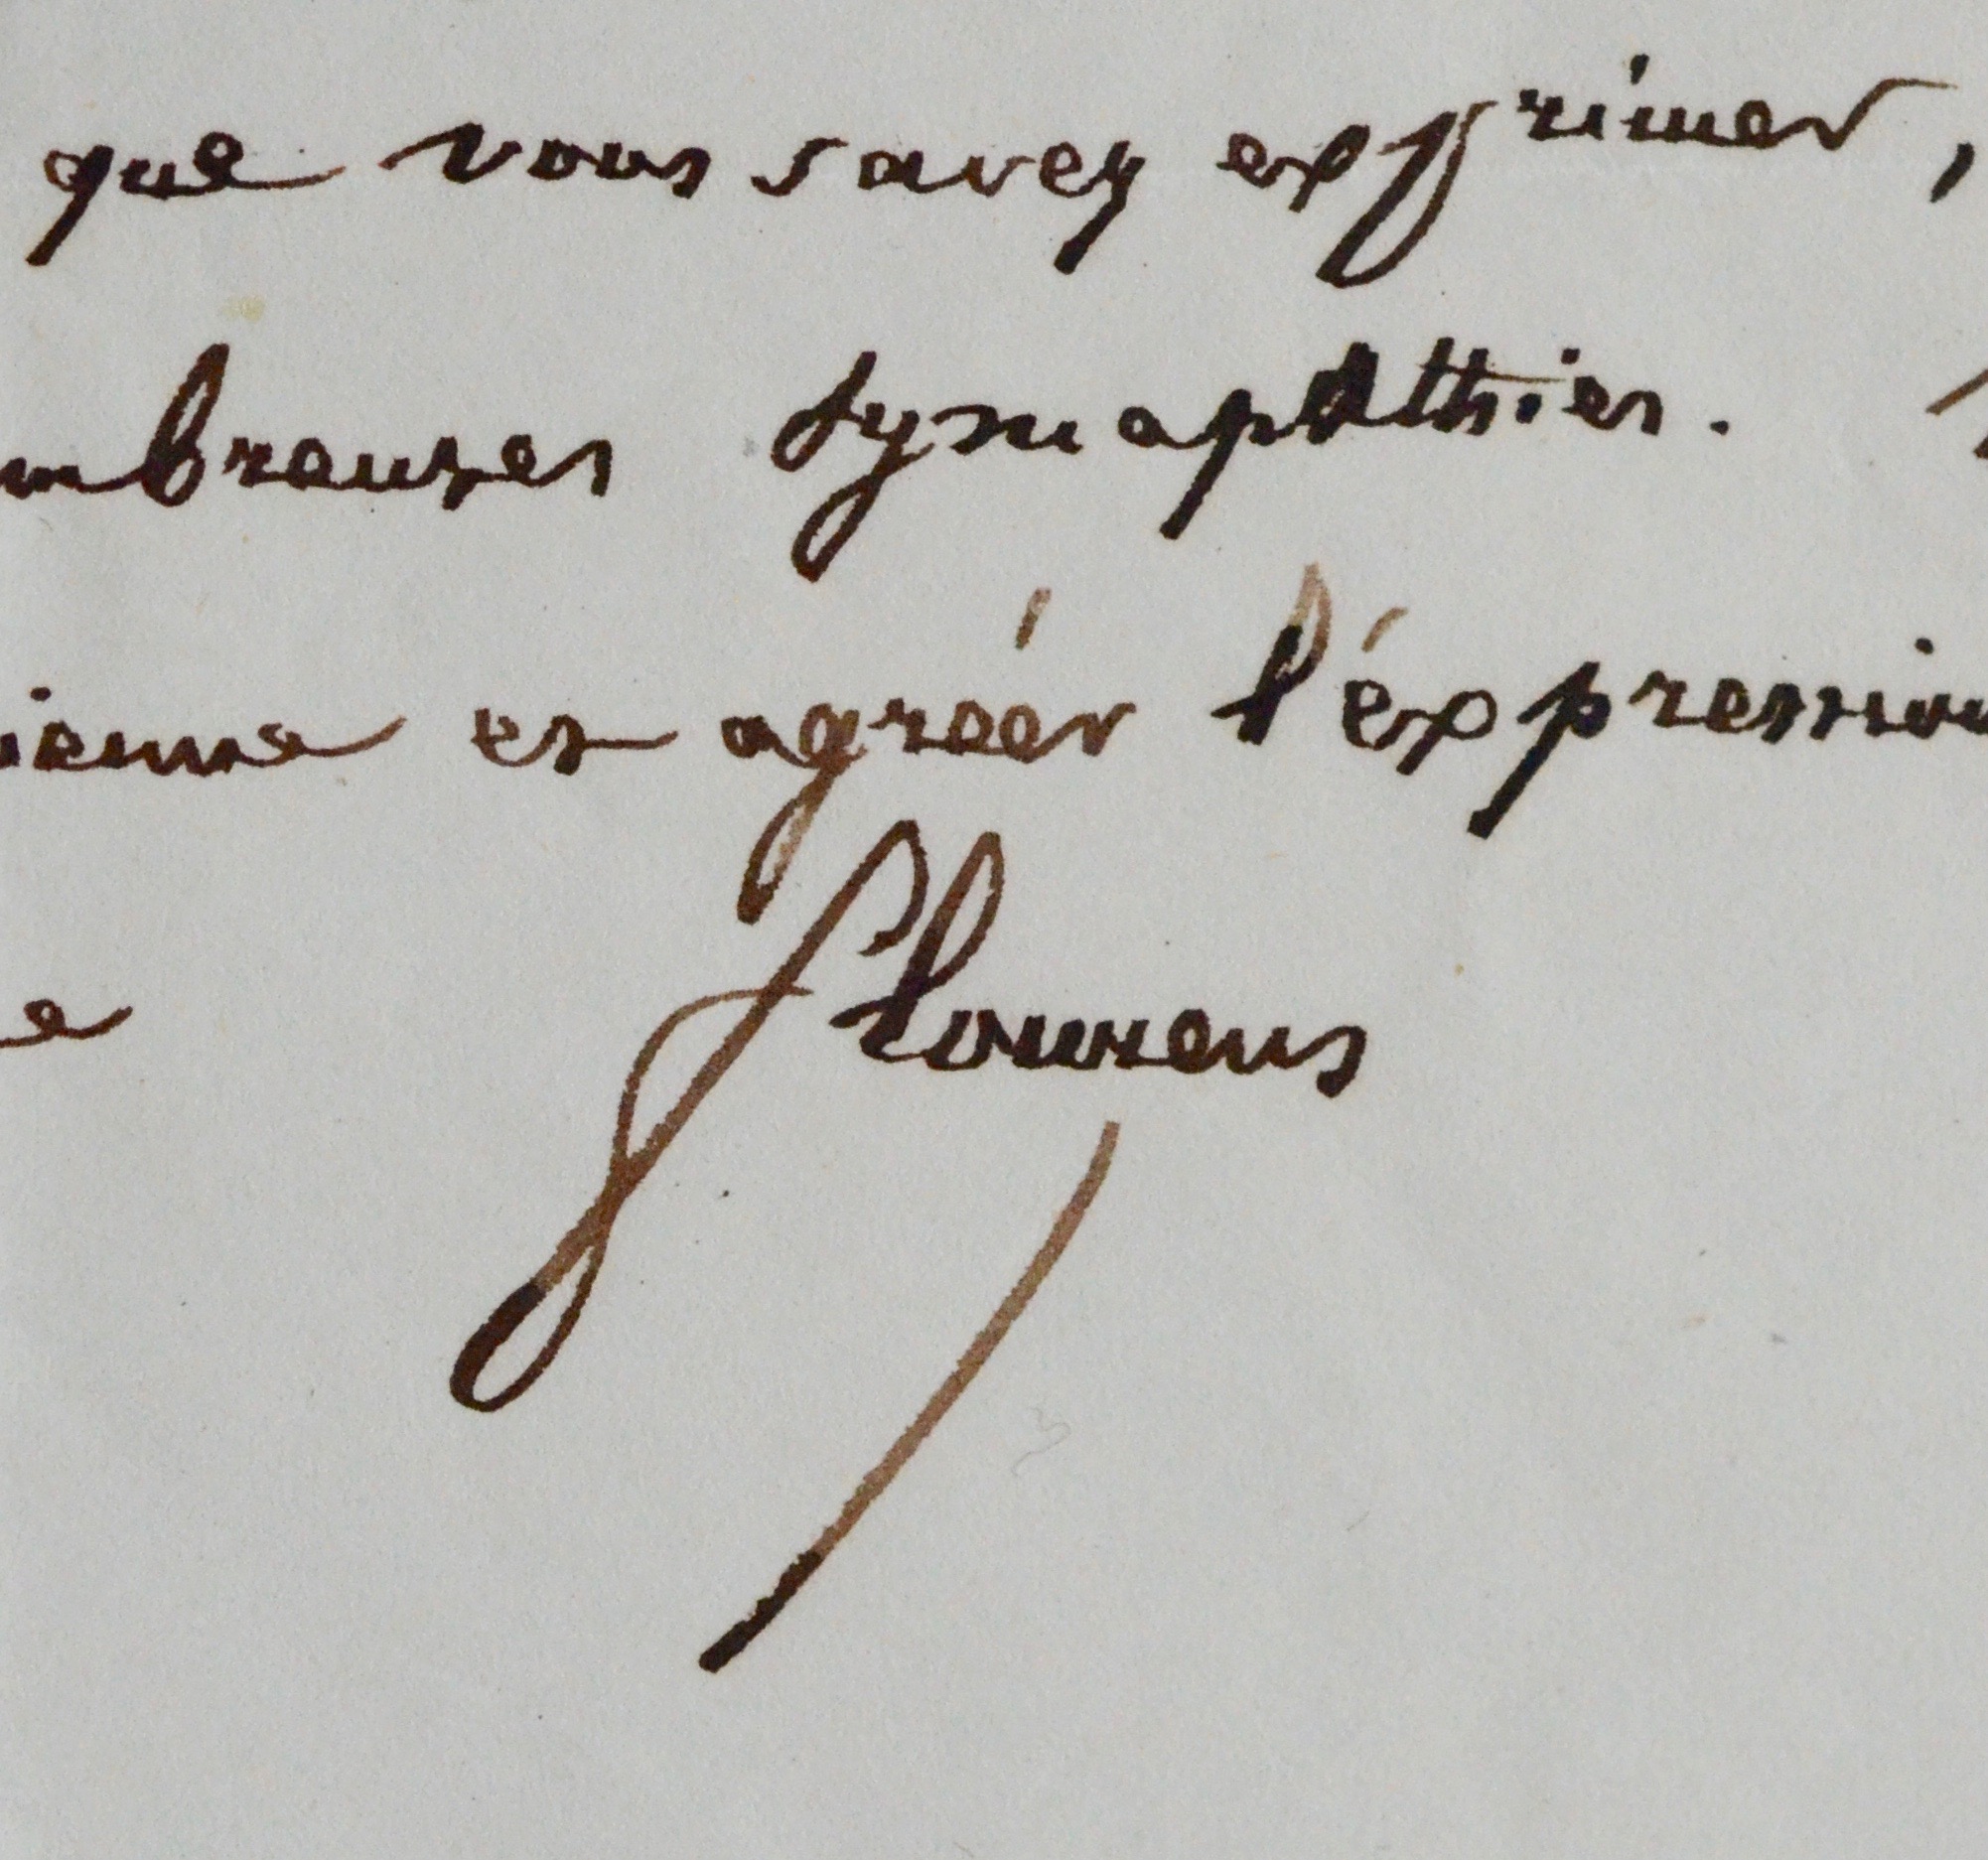 que vous savez exprimer,
mbreuses sympatthies.
ienne et agréér l'éxpression
e
Flourens